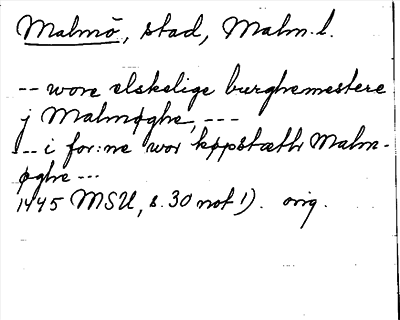 Malmö, stad, Malm. l.
-- wore elskelige burghemestere
j Malmøghe, ---
-- i for:ne wor køpstæth Malm-
øghe ---
1445 MSU, s. 30 not 1). orig.